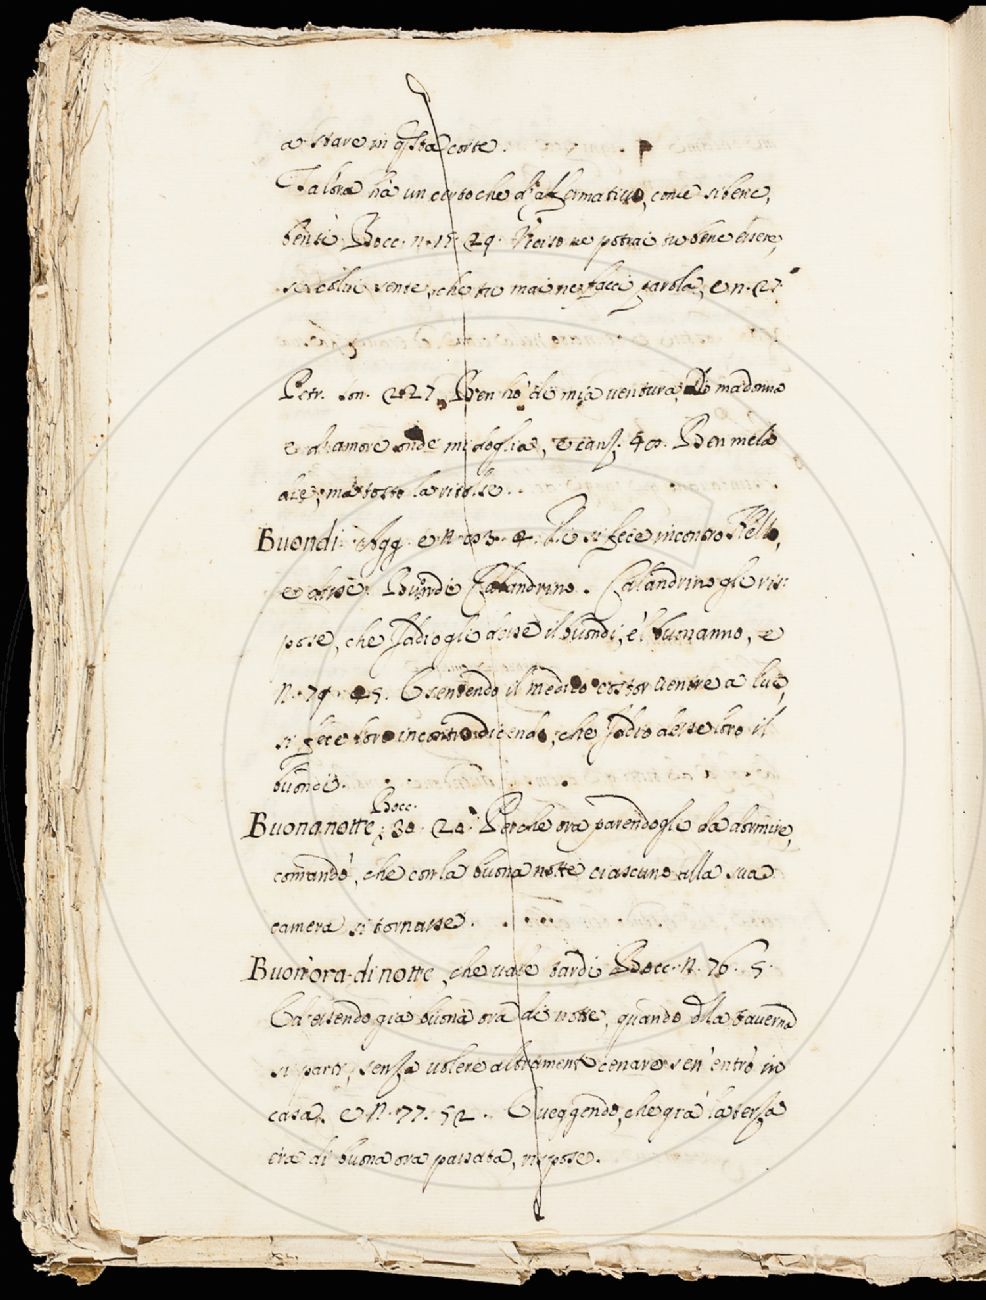 a stare in qsta corte.
Talora hà un certo che d'affermativo, come si bene,
bensi. Bocc. n. 15. 24. Percio ne potrai tu bene essere,
se colui sente, che tu mai ne facci parola, e n. 27.
Petr. son. 227. Ben hò de mia ventura, di madonna
e d'amore onde mi doglia, e canz. 40. Ben mela
ma tosto la ritolse.
Buondi. Agg. e n. 3. 4. si fece incontro Nello,
e disse: Bundi Calandrino. Calandrino gle ris:
pose, che Iddio gli desse il buondi, e'l buonanno, e
n. 79. 45. Usendendo il medico costor venire a lui,
si fece loro incontro dicendo, che Iddio desse loro il
buondi.
Buonanotte; Bocc. 30. 20. Perche ora parendogli da dormire,
comandò, che con la buona notte ciascuno alla sua
camera si tornasse.
Buon'ora di notte, che vale tardi Bocc. n. 76. 5.
Ed essendo già buona ora di notte, quando dlla taverna
si parti, senza volere altramente cenare sen'entrò in
casa. e n. 77. 52. Veggendo, che già la terza
ora di buona ora passata, rispose.